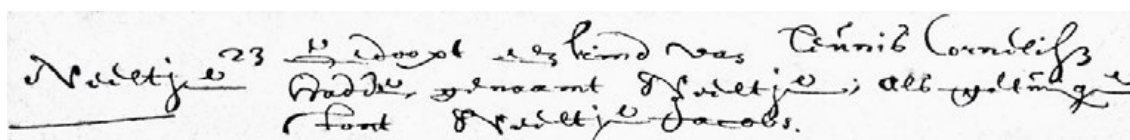 Neeltje 23 gedoopt een kind van Teunis Cornelisz
genaamt Neeltje; als getuyge
stont Neeltje Jacobs.